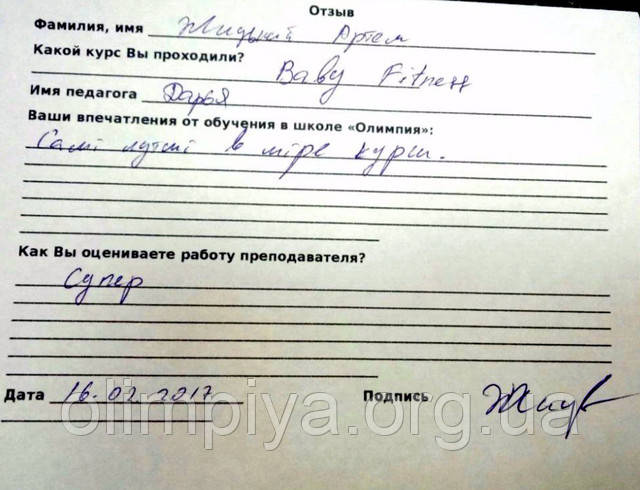 Отзыв
Фамилия, имя Жидкий Артем
Какой курс Вы проходили?
Baby Fitness
Имя педагога Дарья
Ваши впечатления от обучения в школе «Олимпия»:
Самі лутші в міре курси.
Как Вы оцениваете работу преподавателя?
Супер
Дата 16.02.2017 Подпись
olimpiya.org.ua